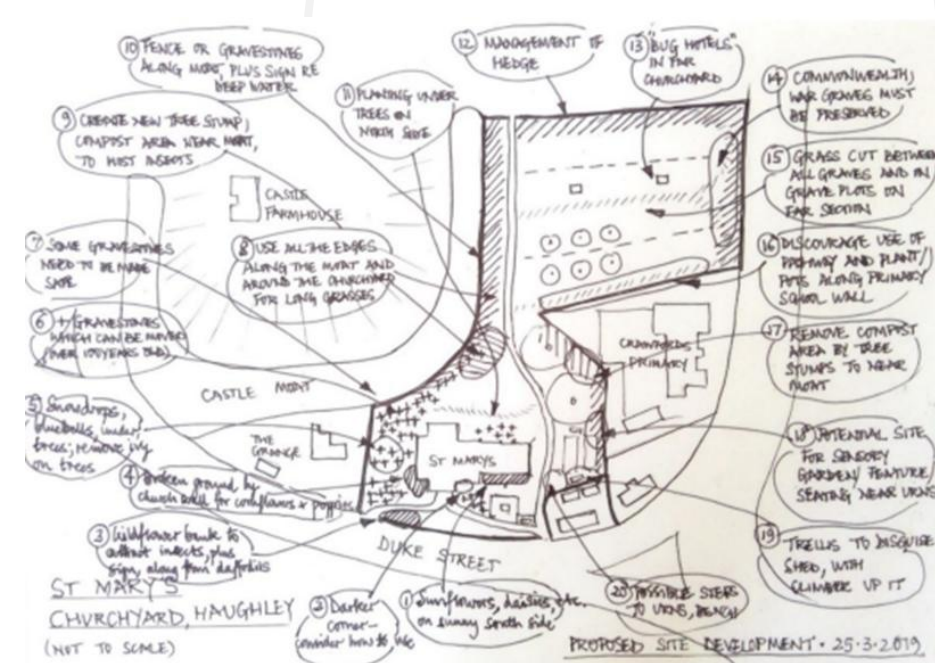 10 FENCE OR GRAVESTONES
ALONG MOAT, PLUS SIGN RE
DEEP WATER
12 MANAGEMENT OF
HEDGE
13 "BUG HOTELS"
IN FAR
CHURCHYARD
14 COMMONWEALTH
WAR GRAVES MUST
BE PRESERVED
9 CREATE NEW TREE STUMP,
COMPOST AREA NEAR MOAT,
TO HOST INSECTS
11 PLANTING UNDER
TREES ON
NORTH SIDE
15 GRASS CUT BETWEEN
ALL GRAVES AND ON
GRAVE PLOTS ON
FAR SECTION
CASTLE
FARMHOUSE
7 SOME GRAVESTONES
NEED TO BE MADE
SAFE
8 USE ALL THE EDGES
ALONG THE MOAT AND
AROUND THE CHURCHYARD
FOR LONG GRASSES
16 DISCOURAGE USE OF
PATHWAY AND PLANT/
POTS ALONG PRIMARY
SCHOOL WALL
6 +/GRAVESTONES
WHICH CAN BE MOVED
(OVER 100 YEARS OLD)
CRAWFORDS
PRIMARY
17 REMOVE COMPOST
AREA BY TREE
STUMPS TO NEAR
MOAT
CASTLE MOAT
5 Snowdrops,
bluebells, under
trees; remove ivy
on trees
THE
GRANGE
ST MARYS
18 POTENTIAL SITE
FOR SENSORY
GARDEN/ FEATURE/
SEATING NEAR URNS
4 Broken ground by
church wall for cornflowers & poppies
3 Wildflower bank to
attract insects, plus
sign, along from daffodils
DUKE STREET
19 TRELLIS TO DISGUISE
SHED, WITH
CLIMBER UP IT
ST MARY'S
CHURCHYARD, HAUGHLEY
(NOT TO SCALE)
2 Darker
corner-
consider how to use
1 Sunflowers, daisies, etc.
on sunny south side
20 POSSIBLE STEPS
TO URNS, BENCH
PROPOSED SITE DEVELOPMENT · 25·3·2019